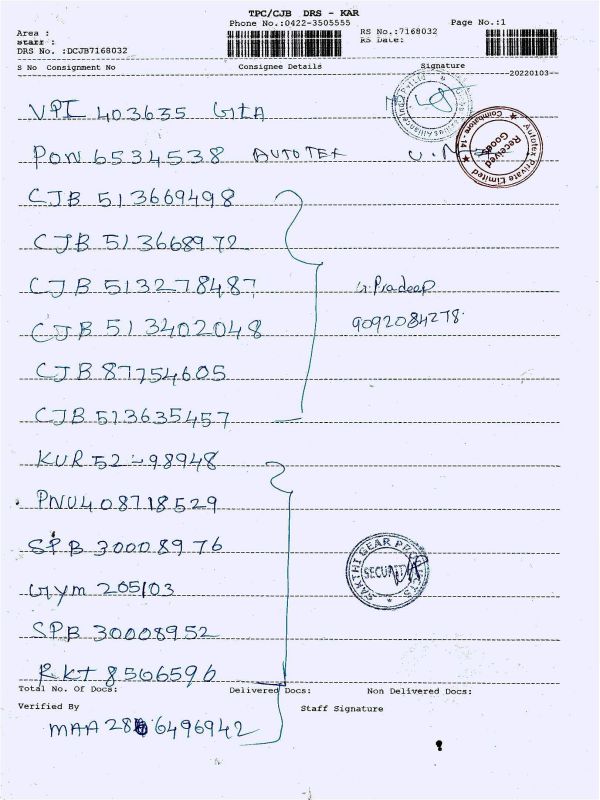 TPC/CJB DRS - KAR
Phone No.:0422-3505555 Page No.:1
Area : RS No.:7168032
Staff : RS Date:
DRS No. :DCJB7168032
S No Consignment No Consignee Details Signature
20220103
VPI 403635 GIA
PON 6534538 AUTOTEX
Autotex Private Limited
Received
Goods
Coimbatore - 14
CJB 513669498
CJB 513668972
CJB 513278487
G Pradeep
CJB 513402048 9092084278
CJB 87754605
CJB 513635457
KUR
PNU 408718529
SPB 30008976
SAKTHI GEAR PRODUCTS
SECURITY
Gym 205103
SPB 30008952
RKT 8506596
Total No. Of Docs: Delivered Docs: Non Delivered Docs:
Verified By Staff Signature
MAA 6496942